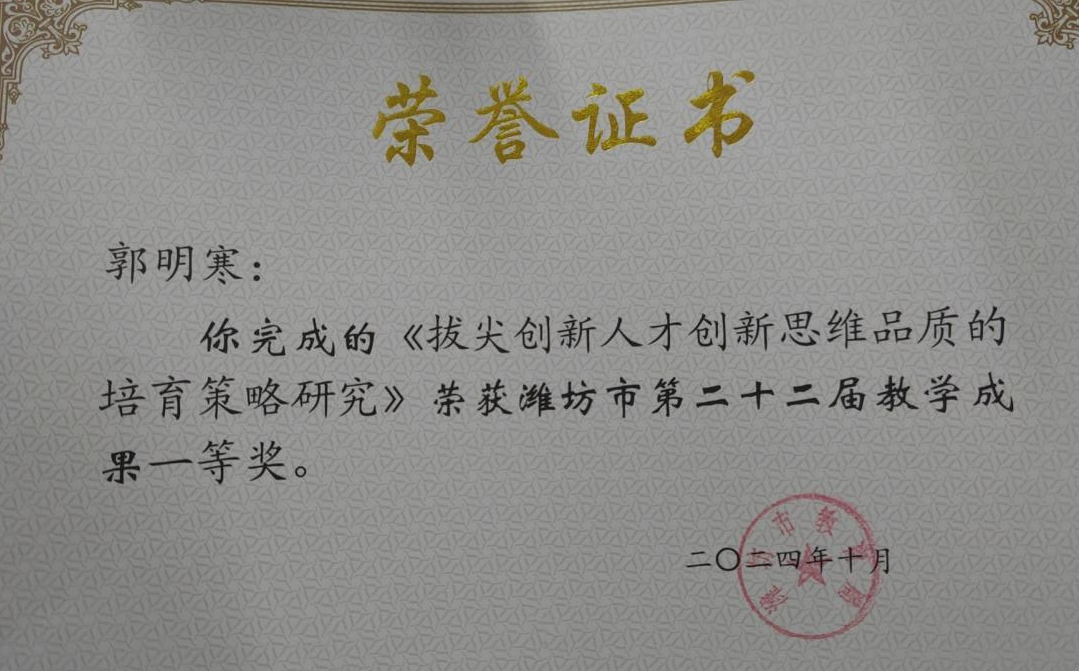 荣誉证书
郭明寒：
你完成的《拔尖创新人才创新思维品质的
培育策略研究》荣获潍坊市第二十二届教学成
果一等奖。
二〇二四年十月
潍坊市教育局